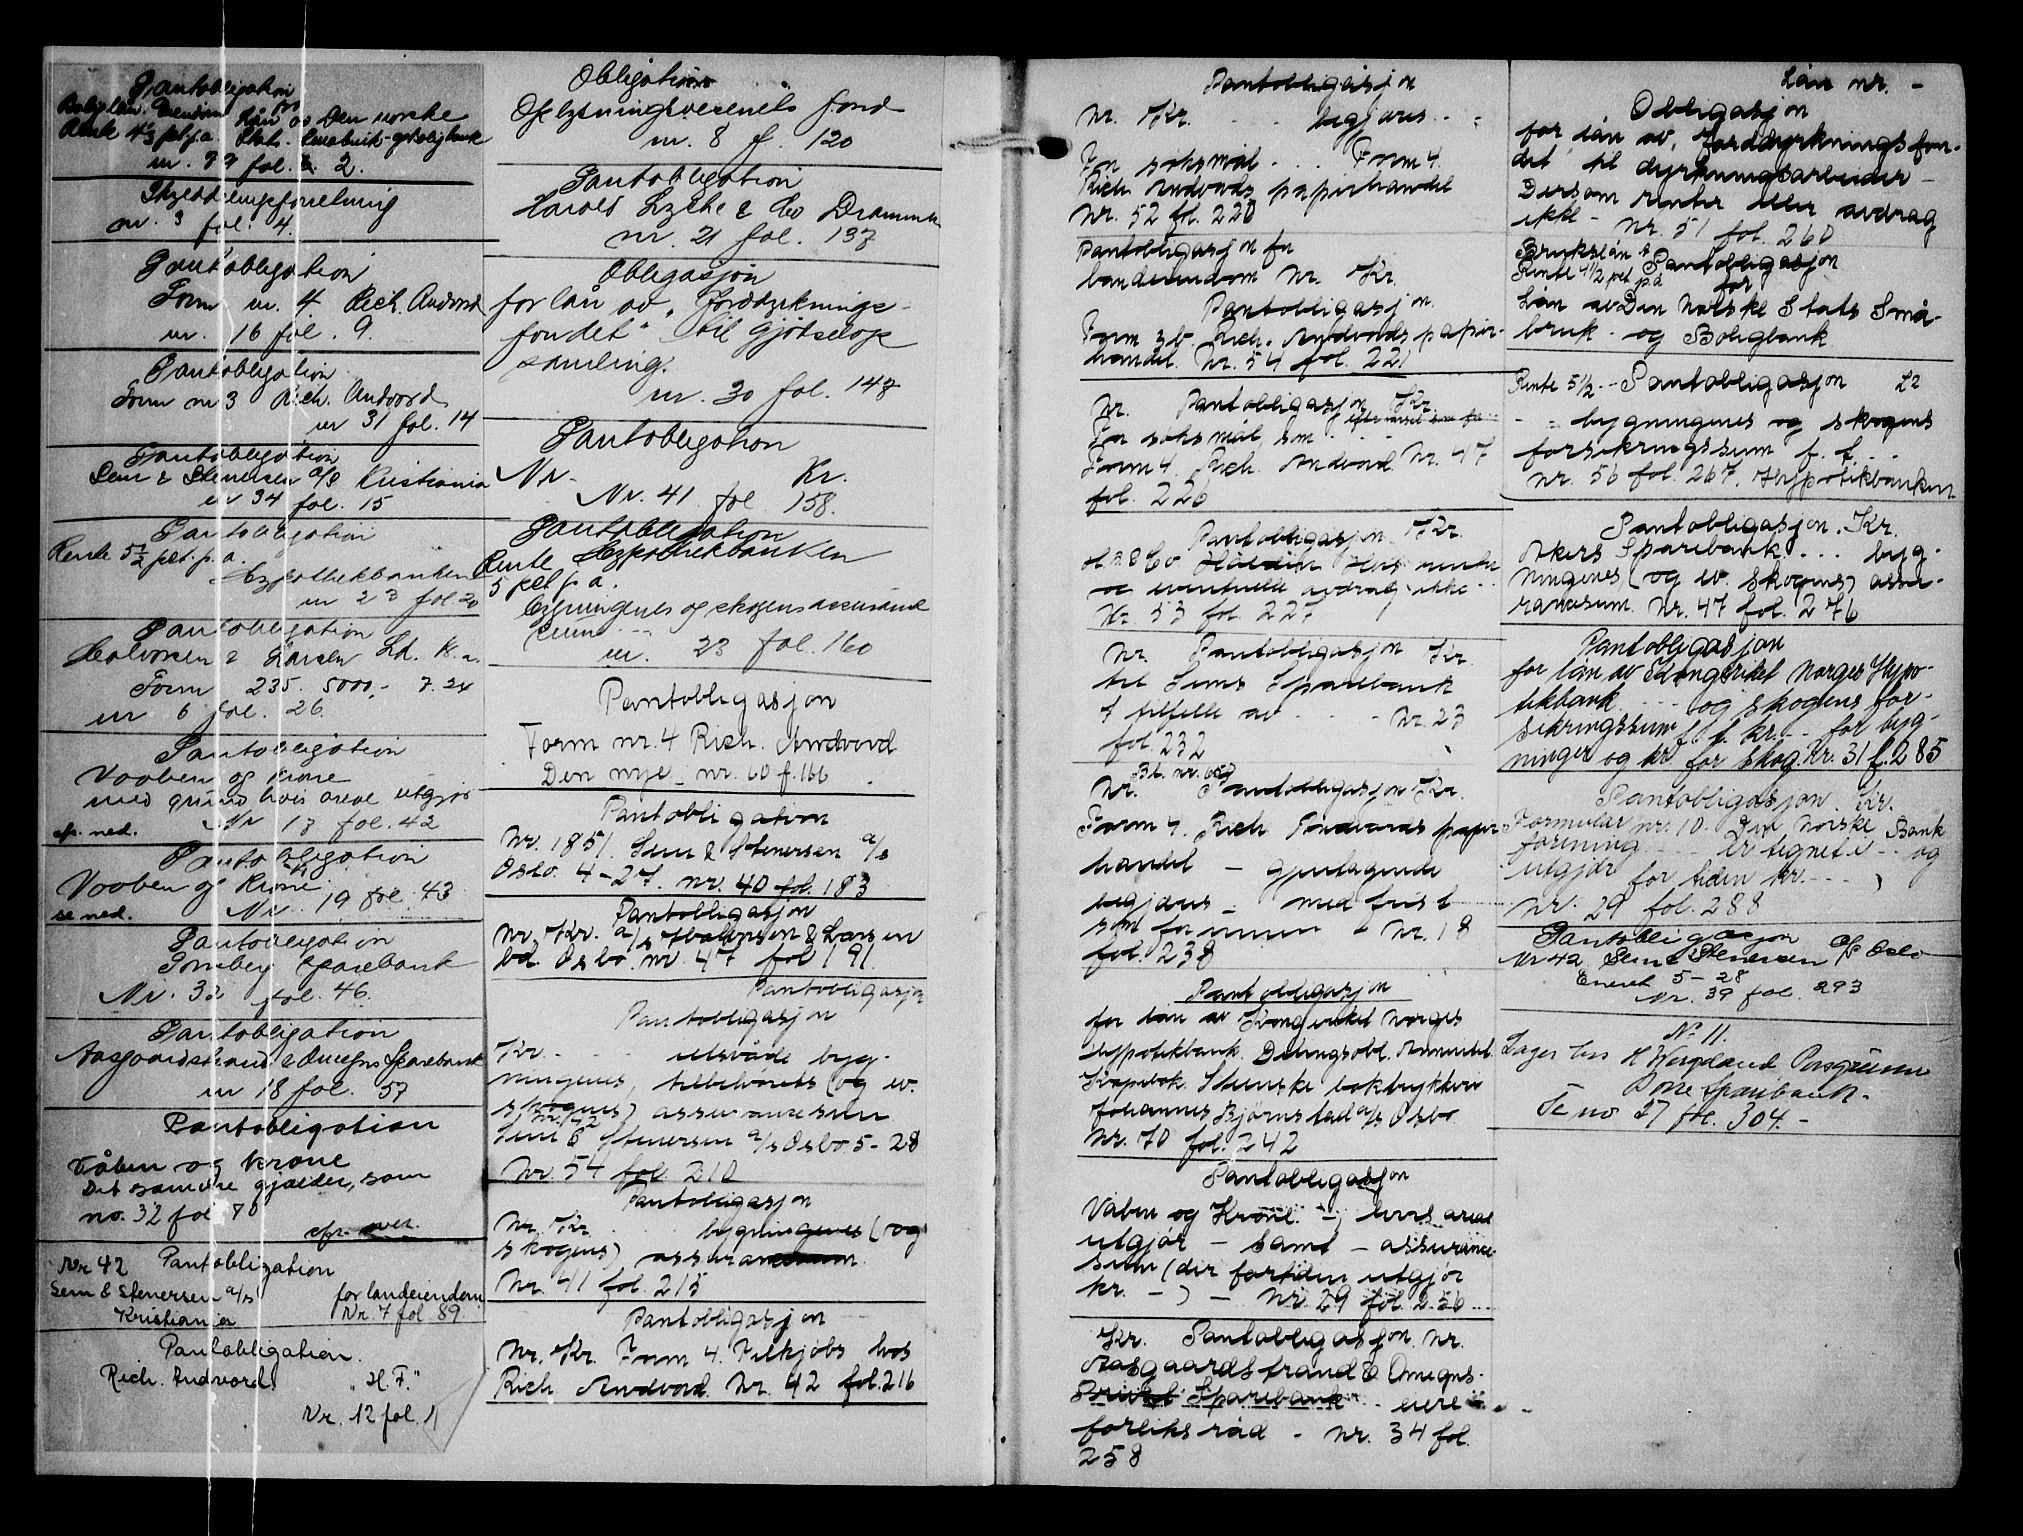 Pantobligation
Bolig lån. Eiendom lån av Den norske
Stats Småbruk- og Boligbank
nr. 99 fol. 2.
Skjeddelingsforretning
nr. 3 fol. 4.
Pantobligation
Form nr. 4 Rich. Andvord
nr. 16 fol. 9.
Pantobligation
Form nr 3 Rich. Andvord
nr 31 fol. 14
Pantobligation
Sem & Stenersen a/s Kristiania
nr 34 fol. 15
Pantobligation
Rente 5 1/2 pct. p. a.
Hypothekbanken
nr 23 fol. 20
Pantobligation
Halvorsen & Larsen Ld. K.a.
Form 235. 5000,- 7.24
nr 6 fol. 26.
Pantobligation
Vaaben og Krone
med grund hvis areal utgjør
cfr. ned. Nr 13 fol. 42
Pantobligation
Vaaben og Krone
se ned. Nr. 19 fol. 43
Pantobligation
Tønsberg Sparebank
Nr. 32 fol. 46.
Pantobligation
Aasgaardstrand & Omegns Sparebank
nr 18 fol. 57
Pantobligation
Våben og krone
Det samme gjælder, som
no. 32 fol 70
cfr. over.
Nr 42 Pantobligation
Sem & Stenersen a/s for landeiendom
Kristiania Nr. 7 fol 89.
Pantobligation.
Rich. Andvord. "H.F."
Nr. 12 fol. 11
Obligation
Oplysningsvesenets fond
nr. 8 f. 120
Pantobligation
Harald Lyche & Co Drammen
nr. 21 fol. 137
Obligasjon
for lån av "Jorddyrknings-
fondet" til gjødsels
samling.
nr. 30 fol. 147
Pantobligation
Nr. Kr.
Nr. 41 fol 158.
Pantobligation
Rente Hypothekbanken
5 pct p. a.
bygningenes og skogens assurance
sum --
nr. 23 fol. 160
Pantobligasjon
Form nr. 4 Rich. Andvord
Den nye - nr. 60 f. 166
Pantobligation
Nr. 1851. Sem & Stenersen a/s
Oslo. 4-27. nr. 40 fol. 183
Pantobligasjon
Nr. Kr. a/s Halvorsen & Larsen
Ld. Oslo. nr. 47 fol 191.
Pantobligasjon
Pantobligasjon
Kr. - - - utsvåde byg-
ningenes, tilbehørets (og ev.
skogens) assuransesum
Nr. 142
Sem & Stenersen a/s Oslo 5-28
Nr. 54 fol. 210
Pantobligasjon
Nr. Kr. bygningenes (og
skogens) assuransesum
Nr. 41 fol. 215
Pantobligasjon
Nr. Kr. Form 4. Filkjøbs hos
Rich. Andvord. Nr. 42 fol. 216
Pantobligasjon
Nr. Kr. . . . begjæres . .
For søksmål . . . Form 4.
Rich Andvords papirhandel
Nr. 52 fol. 220
Pantobligasjon for
landeiendom Nr. Kr.
Pantobligasjon.
Form 3 b. Rich. Andvords papir-
handel. Nr. 54 fol. 221
Nr. Pantobligasjon Kr.
For søksmål, som . . .
Form 4. Rich. Andvord. Nr. 47
fol. 226
Pantobligasjon. Kr.
og eventuelle avdrag ikke . .
Nr. 53 fol. 227
Nr. Pantobligasjon Kr.
til Sems Sparebank
I tilfelle av . . . - Nr. 23
fol. 232
Bl. nr.
Nr. Pantobligasjon Kr.
Form 4. Rich Andvords papir
handel - gjentagende
begjæres - med frist
som formuen - Nr. 18
fol. 238
Pantobligasjon
for lån av Kongeriket Norges
Hypotekbank. Delingsobl. Annuitet.
Johannes Bjørnstad a/s Oslo
Nr. 70 fol. 242
Pantobligasjon
Våben og Krone. -, hvis areal
utgjør - samt - assuranse-
sum (der fortiden utgjør
kr. - ) - Nr. 29 fol. 256 . . .
Kr. Pantobligasjon Nr.
Aasgaardsstrand & Omegns-
Privat Sparebank . . eiere . . -
forliksråd - Nr. 34 fol.
258
Lån nr. -
Obligasjon
for lån av Jorddyrkningsfon-
det til dyrkningsarbeider -
Dersom renter eller avdrag
ikke - Nr. 51 fol. 260
Brukslån
Rente 4 1/2 pct p a Pantobligasjon
for
Lån av Den Norske Stats Små-
bruk- og Boligbank
Rente 5 1/2 -- Pantobligasjon L2
- = bygningenes og skogens
forsikringssum f. f. . .
Nr. 56 fol. 267. Hypotekbanken
Pantobligasjon. Kr.
Akers Sparebank . . . byg-
ningenes (og ev. skogens) assu-
ransesum. Nr. 47 fol. 276
Pantobligasjon
for lån av Kongeriket Norges Hypo-
tekbank . . . og skogens for-
sikringssum f. f. kr. - - for byg-
ninger og kr for skog. Nr. 31 f. 285
Pantobligasjon. Kr.
Formular nr. 10. Den Norske Bank
forening . . . er tegnet i . . og
utgjør for tiden kr. - - - )
Nr. 29 fol. 288
Pantobligasjon
Nr 42 Sem & Stenersen A/S Oslo
Eneret 5-28
Nr. 39 fol. 293
No 11.
Lager hos H Wergeland Porsgrunn
Borre Sparebank.
Se no 27 fol. 304. -